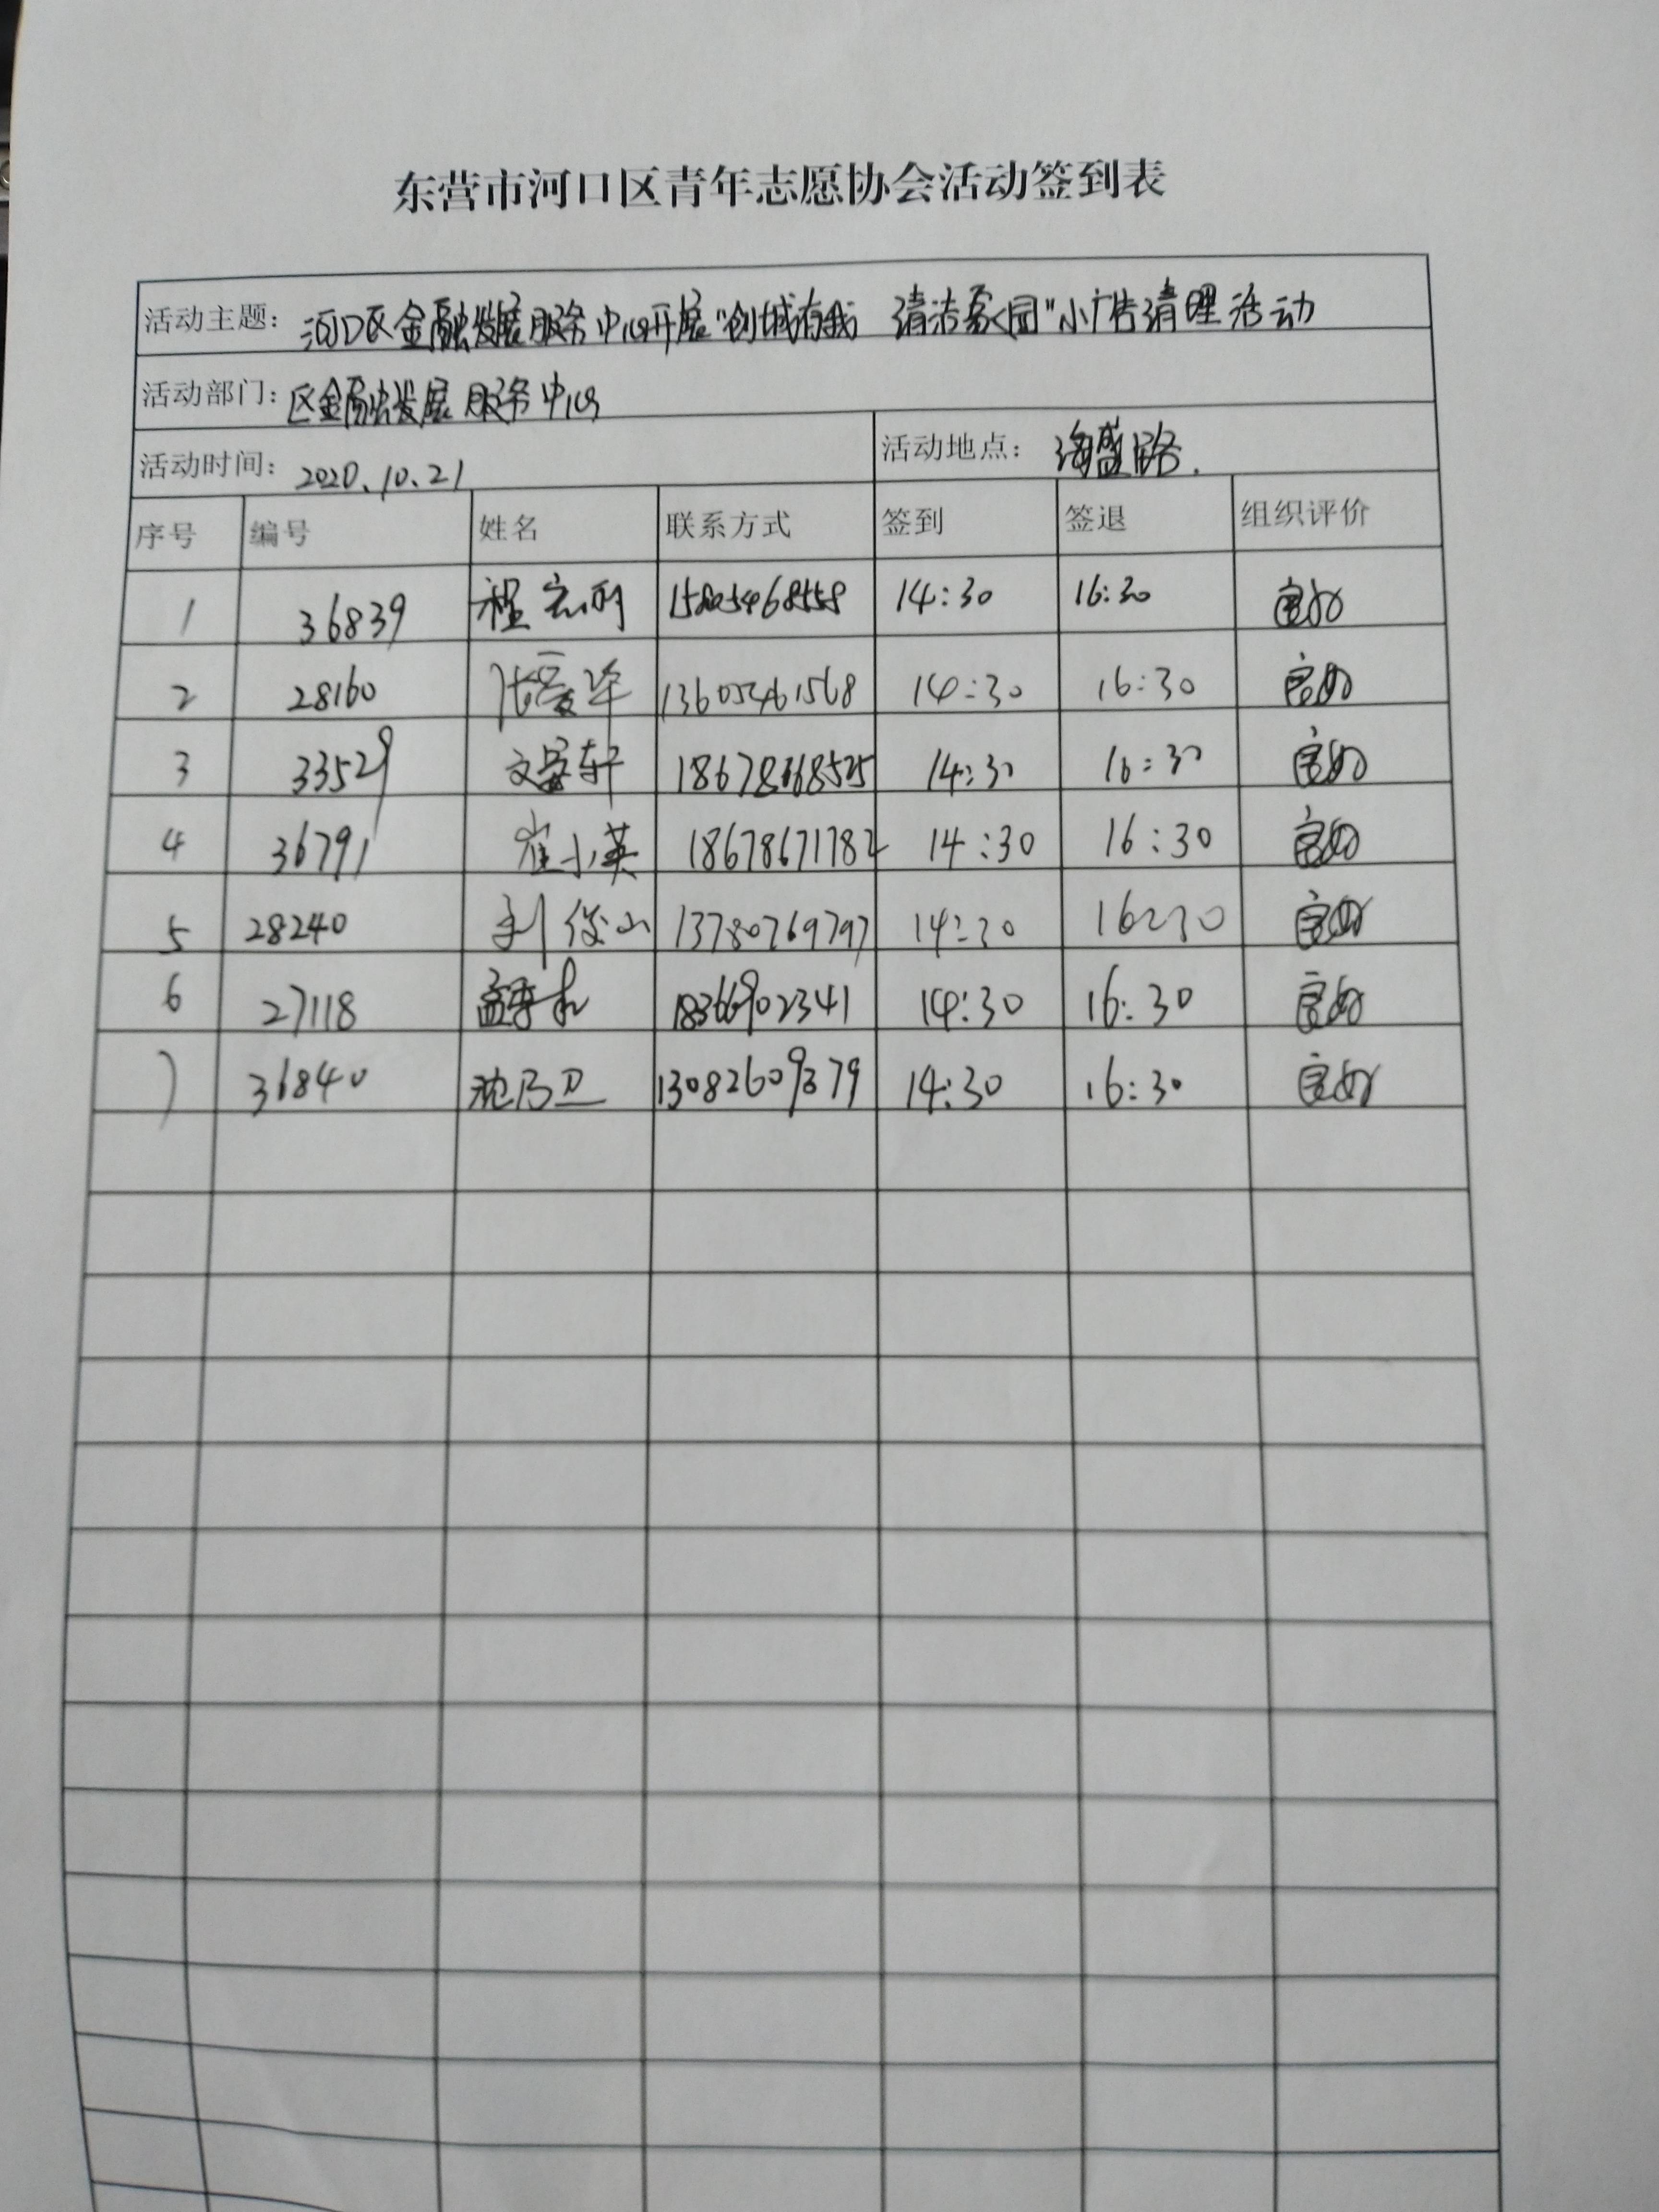 东营市河口区青年志愿协会活动签到表
活动主题：河口区金融发展服务中心开展"创城有我 清洁家园"小广告清理活动
活动部门：区金融发展服务中心
活动时间：2020.10.21 活动地点：海盛路.
序号 编号 姓名 联系方式 签到 签退 组织评价
1 36839 14:30 16:30 良好
2 28160 张爱华 13605461568 14:30 16:30 良好
3 33529 18678668525 14:30 16:30 良好
4 36791 崔小英 18678671782 14:30 16:30 良好
5 28240 13780769797 14:30 16:30 良好
6 27118 18366902341 14:30 16:30 良好
7 36840 14:30 16:30 良好